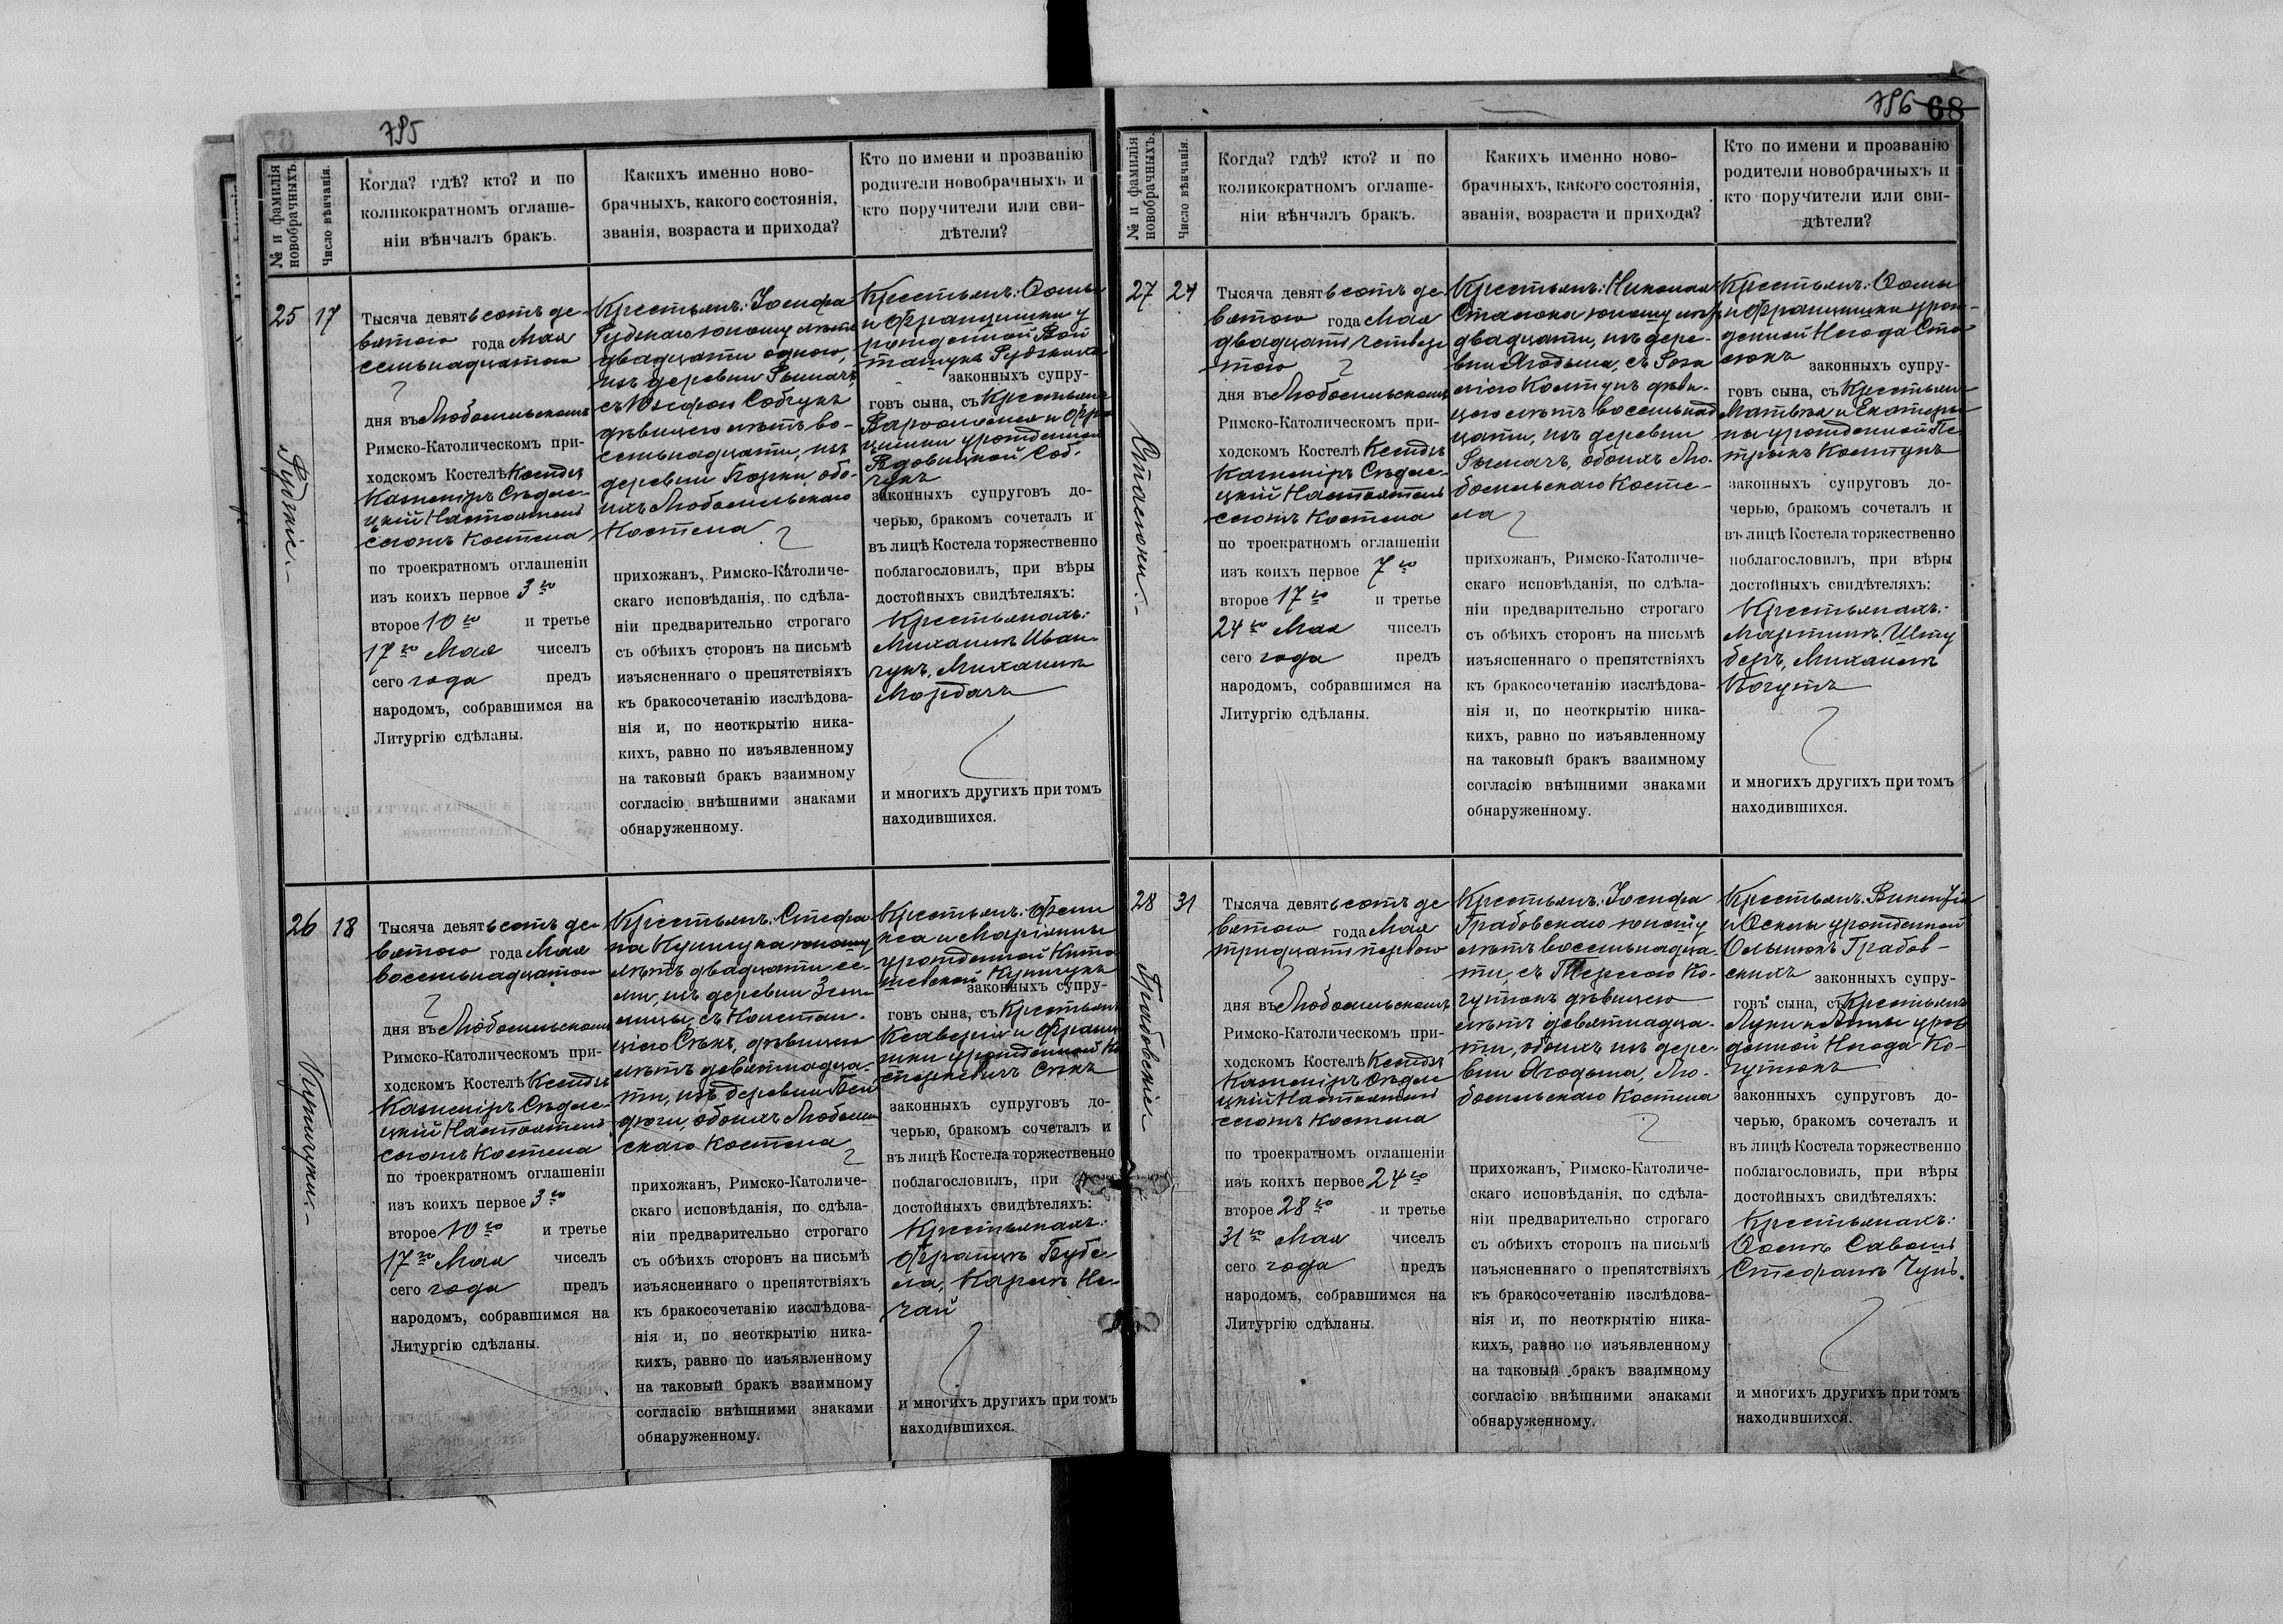 795
№ и фамилія новобрачныхъ.
Число вѣнчанія.
Когда? гдѣ? кто? и по
коликократномъ оглаше-
ніи вѣнчалъ бракъ.
Какихъ именно ново-
брачныхъ, какого состоянія,
званія, возраста и прихода?
Кто по имени и прозванію
родители новобрачныхъ и
кто поручители или сви-
дѣтели?
25
17
Рудзкіе.
Тысяча девятьсотъ де-
вятого года Мая
семьнадцатого
дня въ Любомльскомъ
Римско-Католическомъ при-
ходскомъ Костелѣ Ксендзъ
Казимiръ Сѣдле-
цкій Настоятель
сего Костела
по троекратномъ оглашеніи
изъ коихъ первое 3го
второе 10го и третье
17го Мая чиселъ
сего года предъ
народомъ, собравшимся на
Литургію сдѣланы.
Крестьян: Іосифа
Рудзкаго юношу лѣтъ
двадцати одного,
изъ деревни Рымачъ
съ Юзефой Собчукъ
дѣвицею лѣтъ во-
семьнадцати, изъ
деревни Борки обо-
ихъ Любомльскаго
Костела
прихожанъ, Римско-Католиче-
скаго исповѣданія, по сдѣла-
ніи предварительно строгаго
съ обѣихъ сторонъ на письмѣ
изъясненнаго о препятствіяхъ
къ бракосочетанію изслѣдова-
нія и, по неоткрытію ника-
кихъ, равно по изъявленному
на таковый бракъ взаимному
согласію внѣшними знаками
обнаруженному.
Крестьян: Ѳомы
и Францишки у
рожденной Вой
ташукъ Рудзкихъ
законныхъ супру-
говъ сына, съ Крестьян
Варѳоломея и Фран
цишки урожденной
Вдовицкой Соб-
чукъ
законныхъ супруговъ до-
черью, бракомъ сочеталъ и
въ лицѣ Костела торжественно
поблагословилъ, при вѣры
достойныхъ свидѣтеляхъ:
Крестьянахъ:
Михаилъ Иван-
чукъ, Михаилъ
Мордачъ
и многихъ другихъ при томъ
находившихся.
26
18
Купичуки.
Тысяча девятьсотъ де-
вятого года Мая
восемьнадцатого
дня въ Любомльскомъ
Римско-Католическомъ при-
ходскомъ Костелѣ Ксендзъ
Казимiръ Сѣдле-
цкій Настоятель
сего Костела
по троекратномъ оглашеніи
изъ коихъ первое 3го
второе 10го и третье
17го Мая чиселъ
сего года предъ
народомъ, собравшимся на
Литургію сдѣланы.
Крестьян: Стефа-
на Купичука юношу
лѣтъ двадцати се-
ми, изъ деревни Зем-
лицы, съ Констан-
ціею Сѣкъ, дѣвицею
лѣтъ девятнадца-
ти, изъ деревни Бен
дюги, обоихъ Любомль
скаго Костела
прихожанъ, Римско-Католиче-
скаго исповѣданія, по сдѣла-
ніи предварительно строгаго
съ обѣихъ сторонъ на письмѣ
изъясненнаго о препятствіяхъ
къ бракосочетанію изслѣдова-
нія и, по неоткрытію ника-
кихъ, равно по изъявленному
на таковый бракъ взаимному
согласію внѣшними знаками
обнаруженному.
Крестьян: Фели
кса и Маріанны
урожденной
Купичукъ
законныхъ супру-
говъ сына, съ Крестьян
Ксаверія и Франц
ишки урожденной
Сѣкъ
законныхъ супруговъ до-
черью, бракомъ сочеталъ и
въ лицѣ Костела торжественно
поблагословилъ, при
достойныхъ свидѣтеляхъ:
Крестьянахъ:
Францъ Бубе-
ла, Карлъ Не-
чай
и многихъ другихъ при томъ
находившихся.
796 68
№ и фамилія новобрачныхъ.
Число вѣнчанія.
Когда? гдѣ? кто? и по
коликократномъ оглаше-
ніи вѣнчалъ бракъ.
Какихъ именно ново-
брачныхъ, какого состоянія,
званія, возраста и прихода?
Кто по имени и прозванію
родители новобрачныхъ и
кто поручители или сви-
дѣтели?
27
24
Сталюки.
Тысяча девятьсотъ де-
вятого года Мая
двадцать четвер-
того
дня въ Любомльскомъ
Римско-Католическомъ при-
ходскомъ Костелѣ Ксендзъ
Казимiръ Сѣдле-
цкій Настоятель
сего Костела
по троекратномъ оглашеніи
изъ коихъ первое 7го
второе 17го и третье
24го Мая чиселъ
сего года предъ
народомъ, собравшимся на
Литургію сдѣланы.
Крестьян: Николая
Сталюка юношу лѣтъ
двадцати, изъ дере-
вни Ягодына, съ Роза
ліею Колтунъ дѣви-
цою лѣтъ восемьнад
цати, изъ деревни
Рымачъ, обоихъ Лю-
бомльскаго Косте-
ла
прихожанъ, Римско-Католиче-
скаго исповѣданія, по сдѣла-
ніи предварительно строгаго
съ обѣихъ сторонъ на письмѣ
изъясненнаго о препятствіяхъ
къ бракосочетанію изслѣдова-
нія и, по неоткрытію ника-
кихъ, равно по изъявленному
на таковый бракъ взаимному
согласію внѣшними знаками
обнаруженному.
Крестьян: Ѳомы
и Францишки урож-
денной Негода Ста
люкъ
законныхъ супру-
говъ сына, съ Крестьян
Матвѣя и Екатери
ны урожденной Пе
трукъ Колтунъ
законныхъ супруговъ до-
черью, бракомъ сочеталъ и
въ лицѣ Костела торжественно
поблагословилъ, при вѣры
достойныхъ свидѣтеляхъ:
Крестьянахъ:
Мартинъ Шту
беръ, Михаилъ
Когутъ
и многихъ другихъ при томъ
находившихся.
28
31
Грабовскіе.
Тысяча девятьсотъ де
вятого года Мая
тридцать перваго
дня въ Любомльскомъ
Римско-Католическомъ при-
ходскомъ Костелѣ Ксендзъ
Казимiръ Сѣдле
цкій Настоятель
сего Костела
по троекратномъ оглашеніи
изъ коихъ первое 24го
второе 28го и третье
31го Мая чиселъ
сего года предъ
народомъ, собравшимся на
Литургію сдѣланы.
Крестьян: Іосифа
Грабовскаго юношу
лѣтъ восемьнадца-
ти, съ Терезою Ко-
гутюкъ дѣвицею
лѣтъ девятнадца-
ти, обоихъ изъ дере-
вни Ягодына, Лю-
бомльскаго Костела
прихожанъ, Римско-Католиче-
скаго исповѣданія, по сдѣла-
ніи предварительно строгаго
съ обѣихъ сторонъ на письмѣ
изъясненнаго о препятствіяхъ
къ бракосочетанію изслѣдова-
нія и, по неоткрытію ника-
кихъ, равно по изъявленному
на таковый бракъ взаимному
согласію внѣшними знаками
обнаруженному.
Крестьян: Викентія
и Ѳеклы урожденной
Ольшюкъ Грабов-
скихъ
законныхъ супру-
говъ сына, съ Крестьян
Луки и Анны урож
денной Негода Ко-
гутюкъ
законныхъ супруговъ до-
черью, бракомъ сочеталъ и
въ лицѣ Костела торжественно
поблагословилъ, при вѣры
достойныхъ свидѣтеляхъ:
Крестьянахъ:
Осипъ
Стефанъ Чуль.
и многихъ другихъ при томъ
находившихся.